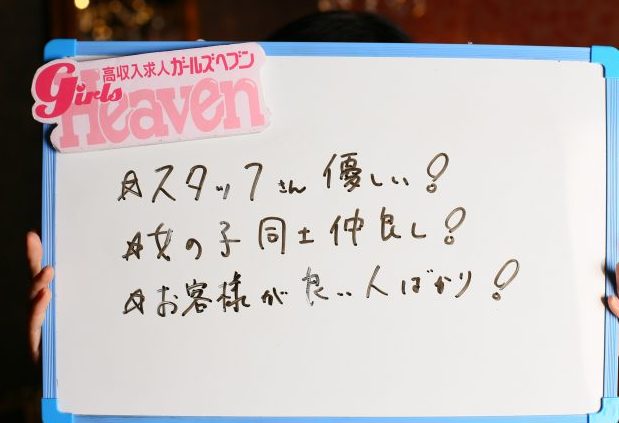 高収入求人ガールズヘブン
Girls
Heaven
☆スタッフさん優しい！
☆女の子同士仲良し！
☆お客様が良い人ばかり！